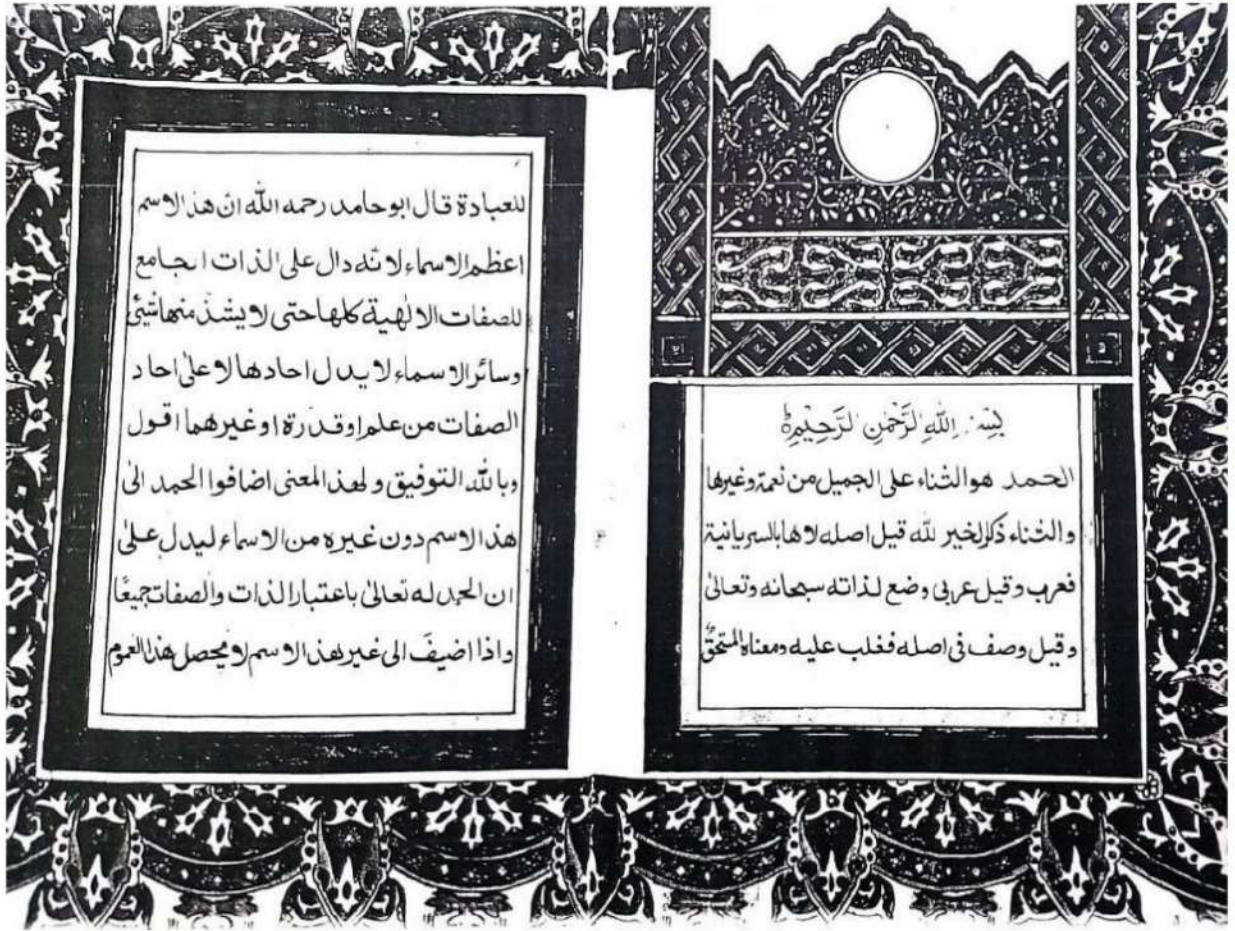 بسم الله الرحمن الرحيم
الحمد هو الثناء على الجميل من نعمة وغيرها
والثناء ذكر الخير لله قيل اصله لاها بالسريانية
فعرب وقيل عربى وضع لذاته سبحانه وتعالىٰ
وقيل وصف فى اصله فغلب عليه ومعناه المستحق
للعبادة قال ابو حامد رحمه الله انّ هذا الاسم
اعظم الاسماء لانّه دال على الذات الجامع
للصفات الالٰهية كلها حتى لا يشذّ منها شيئ
وسائر الاسماء لا يدل احادها الا علىٰ احاد
الصفات من علم او قدرة او غيرهما اقول
وبالله التوفيق ولهذا المعنى اضافوا الحمد الىٰ
هذا الاسم دون غيره من الاسماء ليدل علىٰ
ان الحمد له تعالىٰ باعتبار الذات والصفات جميعًا
واذا اضيفَ الى غير هذا الاسم لا يحصل هذا العموم